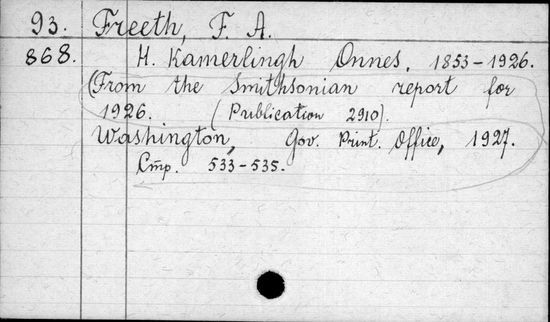 93. Freeth, F. A.
868. H. Kamerlingh Onnes. 1853-1926.
(From the Smithsonian report for
1926. (Publication 2910).
Washington, Gov. Print. Office, 1927.
Cmp. 533-535.